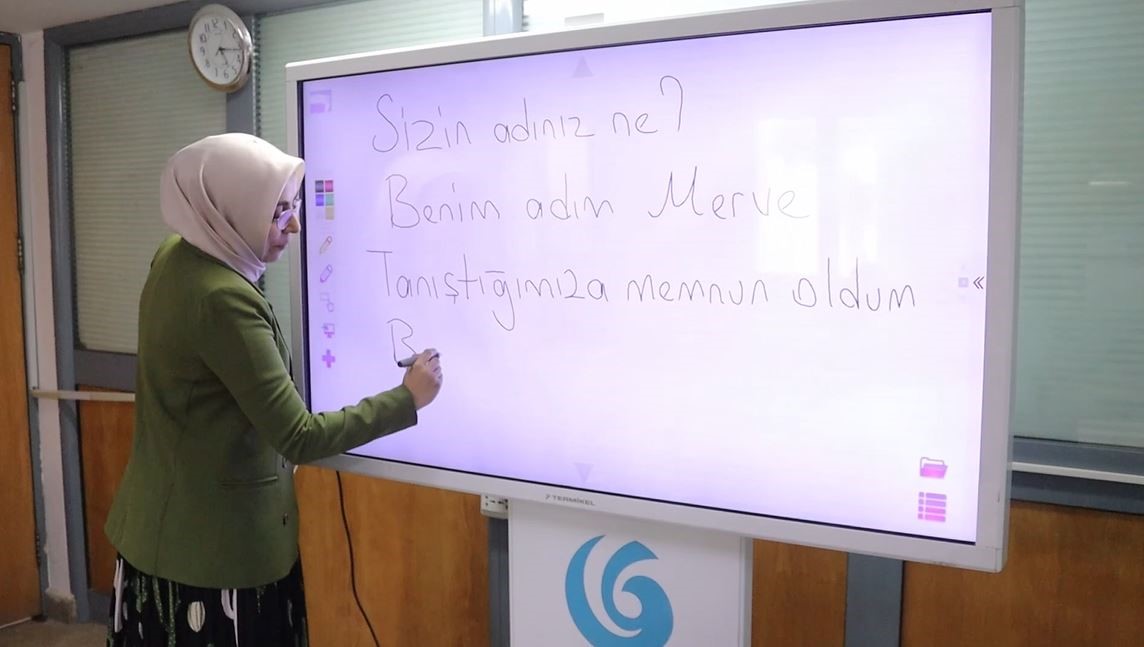 Sizin adınız ne?
Benim adım Merve
Tanıştığımıza memnun oldum
B
TERMİKEL